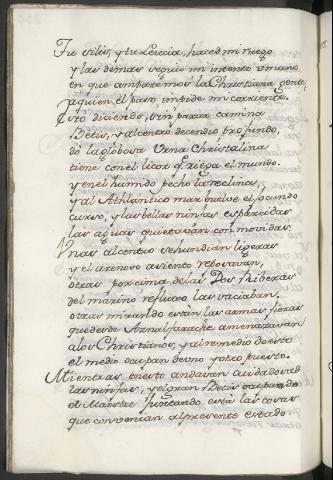 Tu silis, y tu Leucia, haced mi ruego
y las demas seguid mi intento Umano
en que amparemos la Christiana gente,
y aquien el paso impide mi corriente.
Esto diciendo, sin parar camina
Betis, y al centro decendio profundo,
do la globosa Vrna Christalina
tiene con el licor q. riega el mundo.
y en el humido pecho la reclina,
y al Athlantico mar buelve el jocundo
curso, y las bellas ninfas esparcidas
las aguas quietavan conmovidas.
Vnas al centro se hundian ligeras
y el arenoso asiento rebosavan,
otras por cima de las Dos Riberas
del marino refluxo las vaciaban.
otras mirando están las armas fieras
que desde Aznalfarache amenazavan
a los Christianos, y al remedio desto
el medio ocupan de uno y otro puesto.
Mientras en esto andavan cuidadosas
las ninfas, y el gran Betis ocupado
el Maestre juntando está las cosas
que convenian al presente estado.